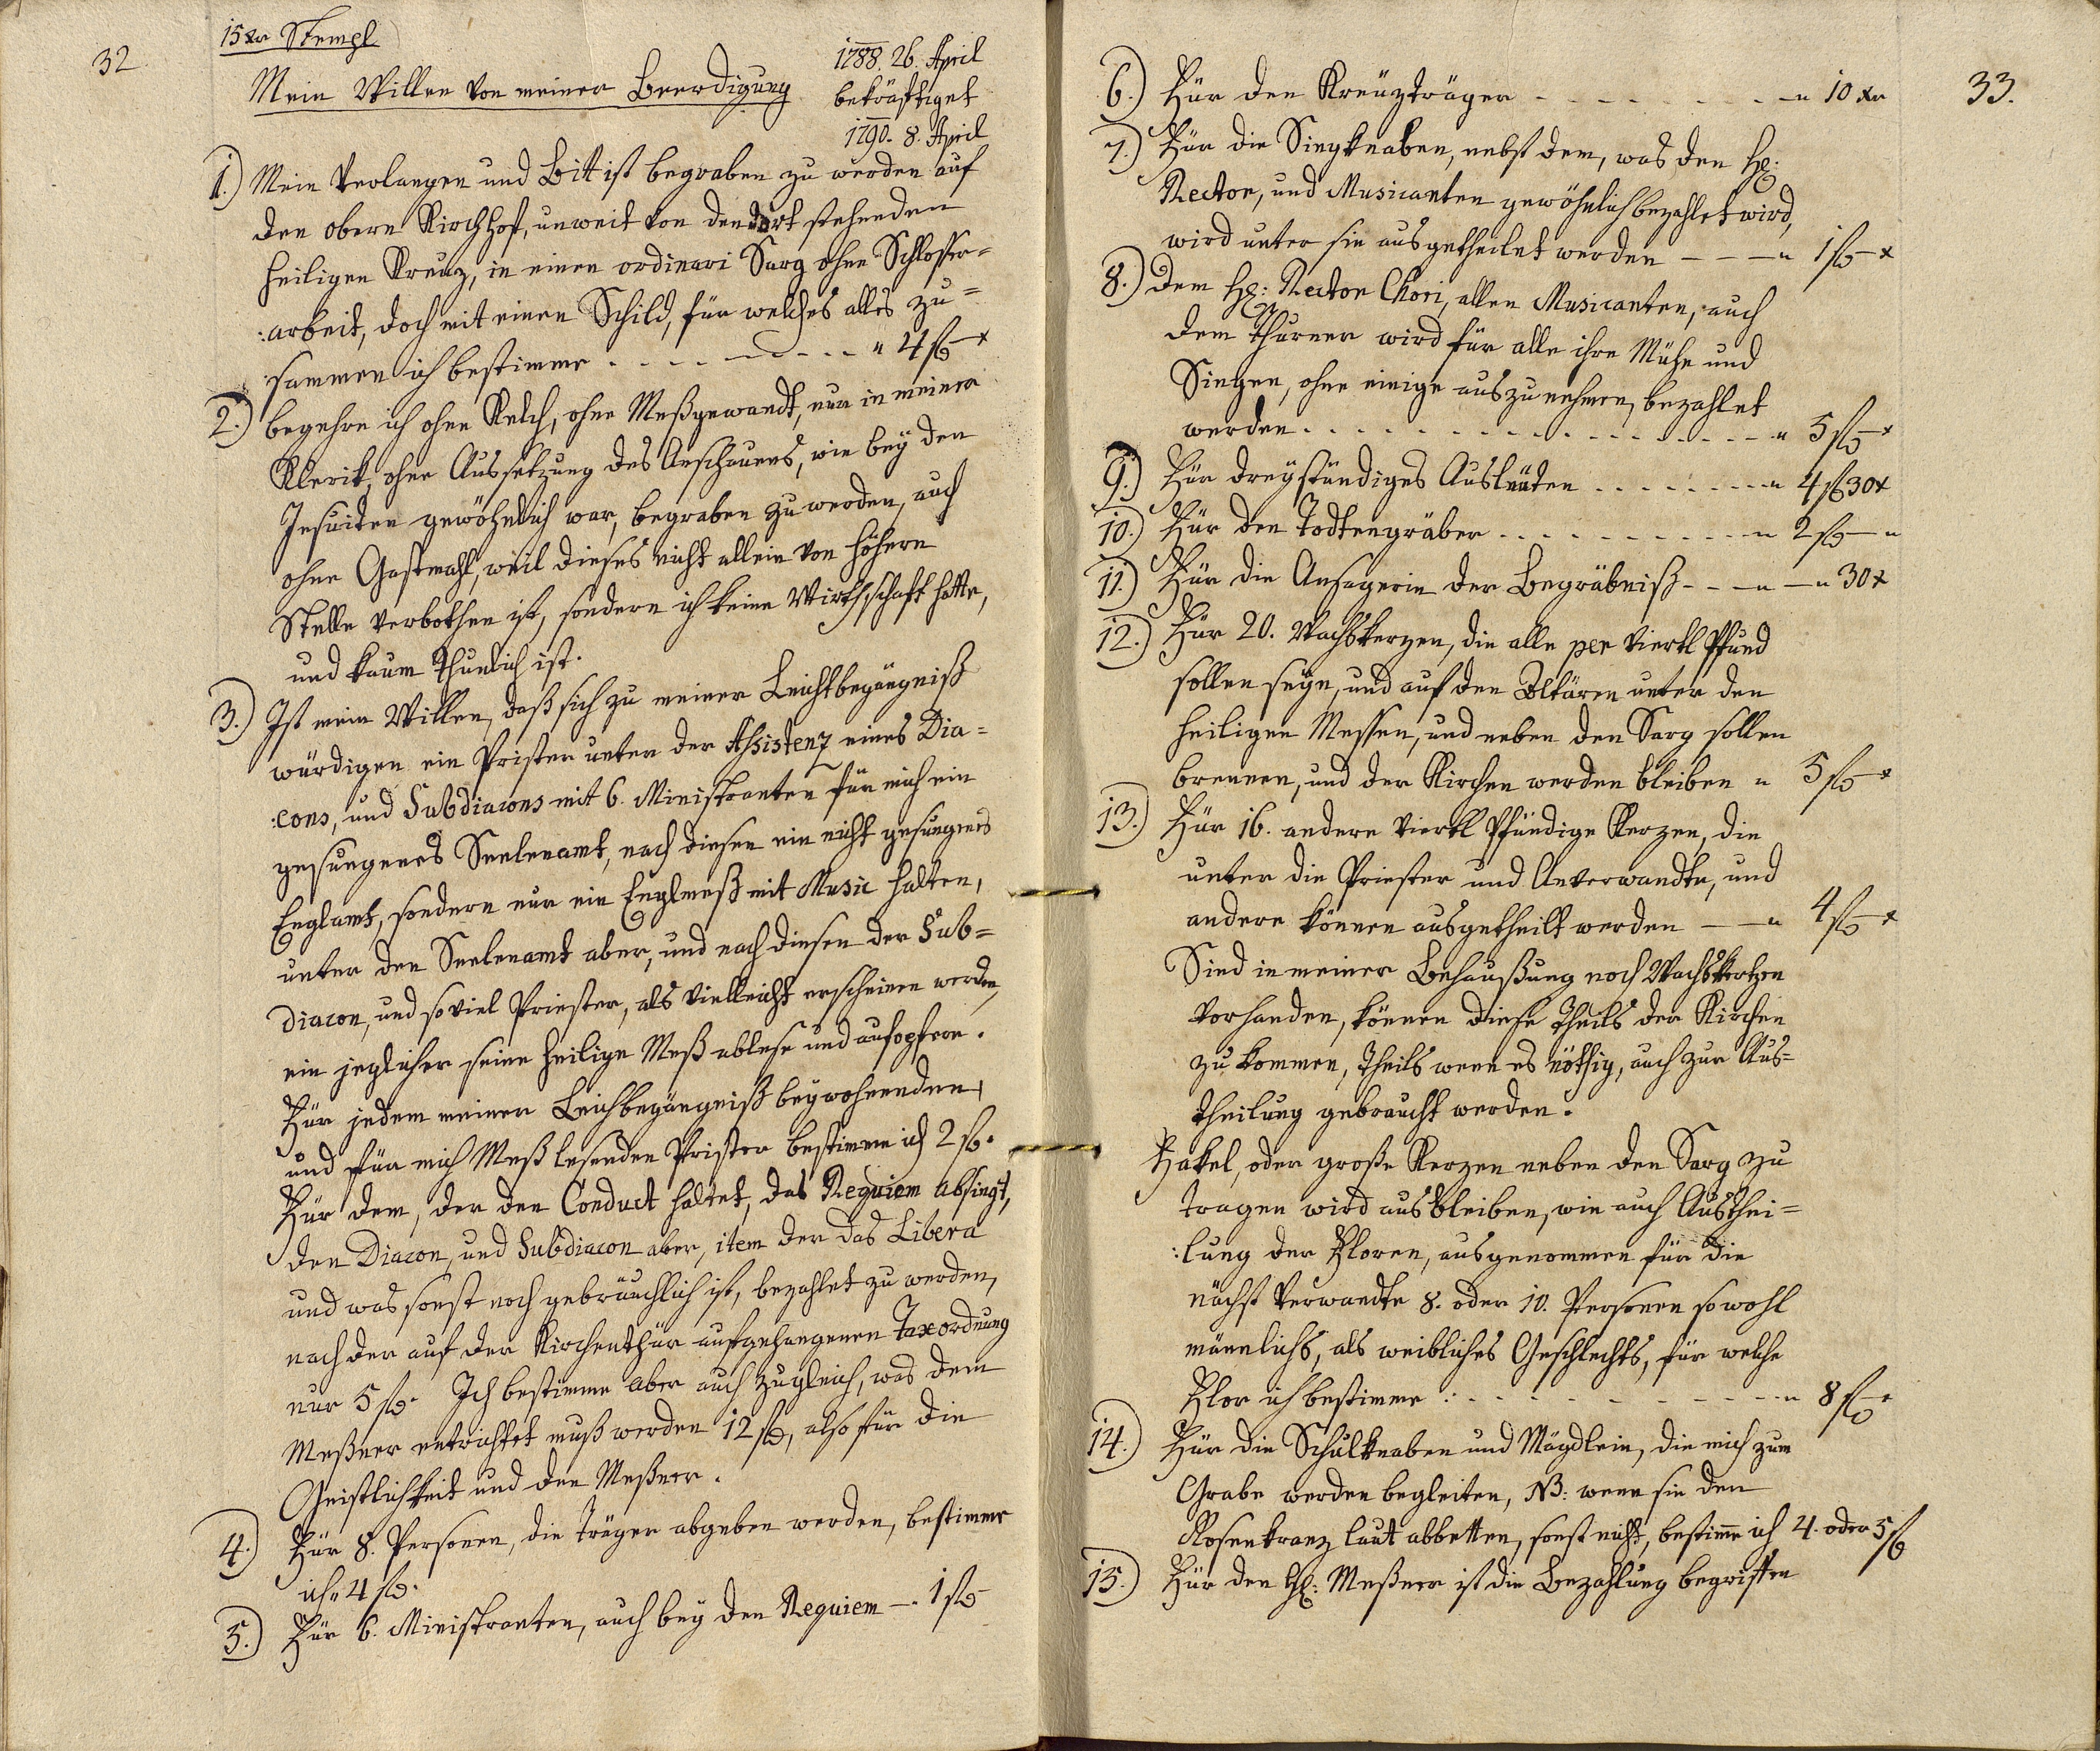 32
15 xr Stempl
Mein Willen von meiner Beerdigung
1788. 26. April
bekräftiget
1790. 8. April
1.) Mein Verlangen und Bitt ist begraben zu werden auf
den obern Kirchhof, unweit von den dort stehenden
heiligen Kreuz, in einen ordinari Sarg ohne Schlosser=
:arbeit, doch mit einen Schild, für welches alles zu=
:sammen ich bestimme . . . . — . . . „ 4 fl — x
2.) begehre ich ohne Kelch, ohne Meßgewandt, nur in meiner
Klerik, ohne Aussetzung des Anschauens, wie bey den
Jesuiten gewöhnlich war, begraben zu werden, auch
ohne Gastmahl, weil dieses nicht allein von höhern
Stelle verbothen ist, sondern ich keine Wirthschaft hatte,
und kaum thunlich ist.
3.) Ist mein Willen, daß sich zu meiner Leichtbegängniß
würdigen ein Prister unter der Assistenz eines Dia=
:cons, und Subdiacons mit 6. Ministranten für mich ein
gesungenes Seelenamt, nach diesen ein nicht gesungenes
Englamt, sondern nur ein Englmeß mit Music halten,
unter den Seelenamt aber, und nach diesen der Sub=
diacon, und so viel Priester, als vielleicht erscheinen werden,
ein jeglicher seine heilige Meß ablese und aufopfere.
Für jedem meiner Leichbegängniß beywohnenden,
und für mich Meß lesenden Prister bestimme ich 2 fl.
Für dem, der den Conduct haltet, das Requiem absingt,
den Diacon, und Subdiacon aber, item der das Libera
und was sonst noch gebräuchlich ist, bezahlet zu werden,
nach der auf der Kirchenthür aufgehangenen Taxordnung
nur 5 fl. Ich bestimme aber auch zugleich, was dem
Meßner entrichtet muß werden 12 fl, also für die
Geistlichkeit und den Meßner.
4.) Für 8. Personen, die Träger abgeben werden, bestimme
ich „ 4 fl.
5.) Für 6. Ministranten, auch bey den Requiem — . 1 fl —
33.
6.) Für den Kreuzträger - - - - - - - — „ 10 xr
7.) Für die Singknaben, nebst dem, was den H:
Rector, und Musicanten gewöhnlich bezahlet wird,
wird unter sie ausgetheilet werden — — — „ 1 fl — x
8.) Dem H: Rector Chori, allen Musicanten, auch
dem Thurner wird für alle ihre Mühe und
Singen, ohne einige auszunehmen, bezahlet
werden . . . . . . . . . . . . . . . — „ 5 fl — x
9.) Für dreystündiges Ausläuten . . . . . . . — „ 4 fl 30 x
10.) Für den Todtengräber . . . . . . . . . — „ 2 fl — „
11.) Für die Ansagerin der Begräbniß - - — „ — „ 30 x
12.) Für 20. Wachskerzen, die alle per Viertl Pfund
sollen seyn, und auf den Altären unter den
heiligen Messen, und neben den Sarg sollen
brennen, und der Kirchen werden bleiben „ 5 fl — x
13.) Für 16. andere Viertl Pfündige Kerzen, die
unter die Priester und Anverwandte, und
andere können ausgetheilt werden — — „ 4 fl — x
Sind in meiner Behaußung noch Wachskertzen
vorhanden, können diese theils der Kirchen
zu kommen, theils wenn es nöthig, auch zur Aus=
theilung gebraucht werden.
Fakel, oder große Kerzen neben den Sarg zu
tragen wird ausbleiben, wie auch Austhei=
:lung der Floren, ausgenommen für die
nächst Verwandte 8. oder 10. Personen sowohl
männlichs, als weibliches Geschlechts, für welche
Flor ich bestimme : - - - - - - - - — „ 8 fl — x
14.) Für die Schulknaben und Mägdlein, die mich zum
Grabe werden begleiten, NB: wenn sie den
Rosenkranz laut abbetten, sonst nicht, bestime ich 4. oder 5 fl
15.) Für den H: Meßner ist die Bezahlung begriffen